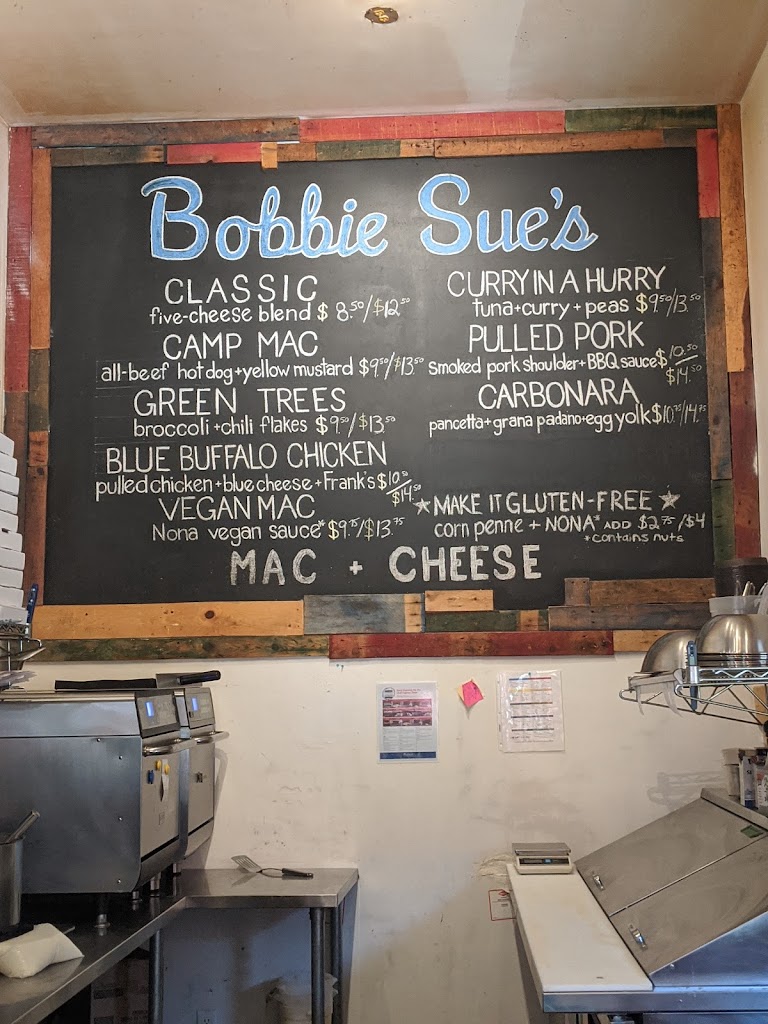 Bobbie Sue's
CLASSIC
five-cheese blend $8.50/$12.50
CAMP MAC
all-beef hotdog+yellow mustard $9.50/$13.50
GREEN TREES
broccoli+chili flakes $9.50/$13.50
BLUE BUFFALO CHICKEN
pulled chicken+blue cheese+Frank's $10.50/$14.50
VEGAN MAC
Nona vegan sauce* $9.75/$13.75
CURRY IN A HURRY
tuna+curry+peas $9.50/13.50
PULLED PORK
smoked pork shoulder+BBQ sauce $10.50/$14.50
CARBONARA
pancetta+grana padano+egg yolk $10.75/14.75
★MAKE IT GLUTEN-FREE★
corn penne + NONA* ADD $2.75/$4
*contains nuts
MAC + CHEESE